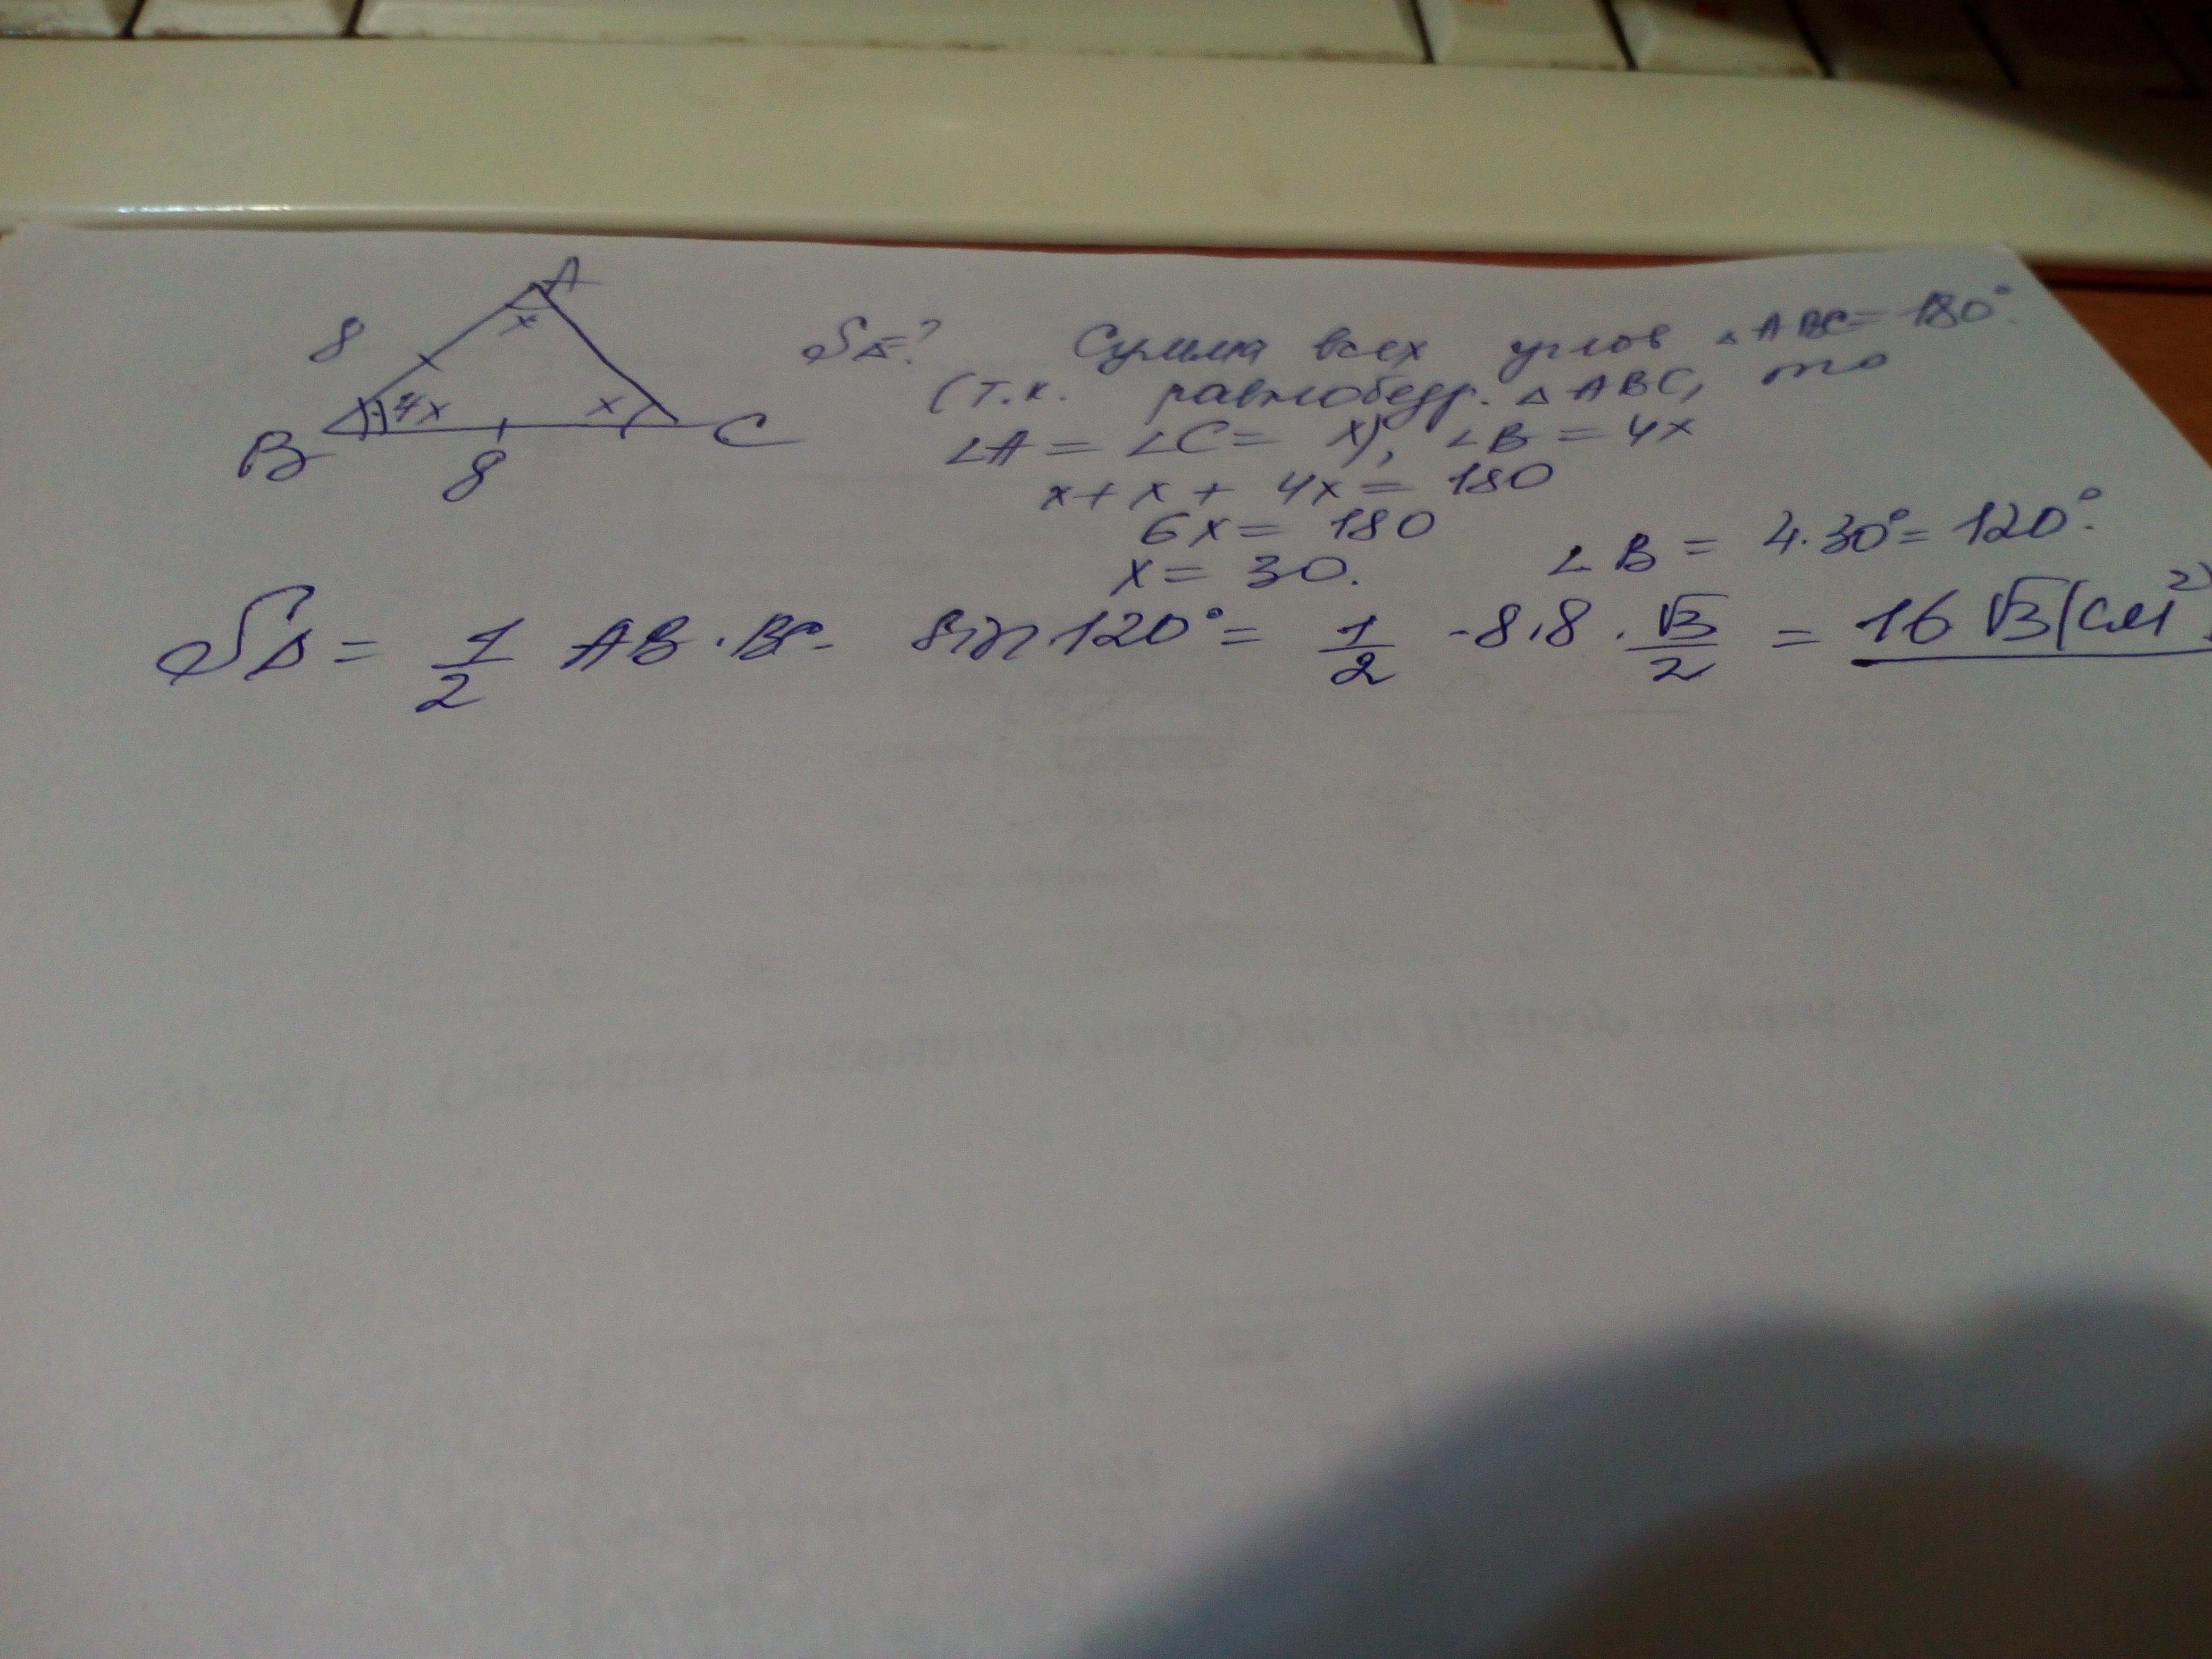 A
8
x
4x
x
B
8
C
S△=?
Сумма всех углов △ABC= 180°.
(т.к. равнобедр. △ABC, то
∠A = ∠C= x), ∠B = 4x
x+x+ 4x= 180
6x= 180
x= 30.
∠B = 4·30°= 120°.
S△= 1/2 AB·BC· sin 120°= 1/2 ·8·8·√3/2 = 16√3(см²)